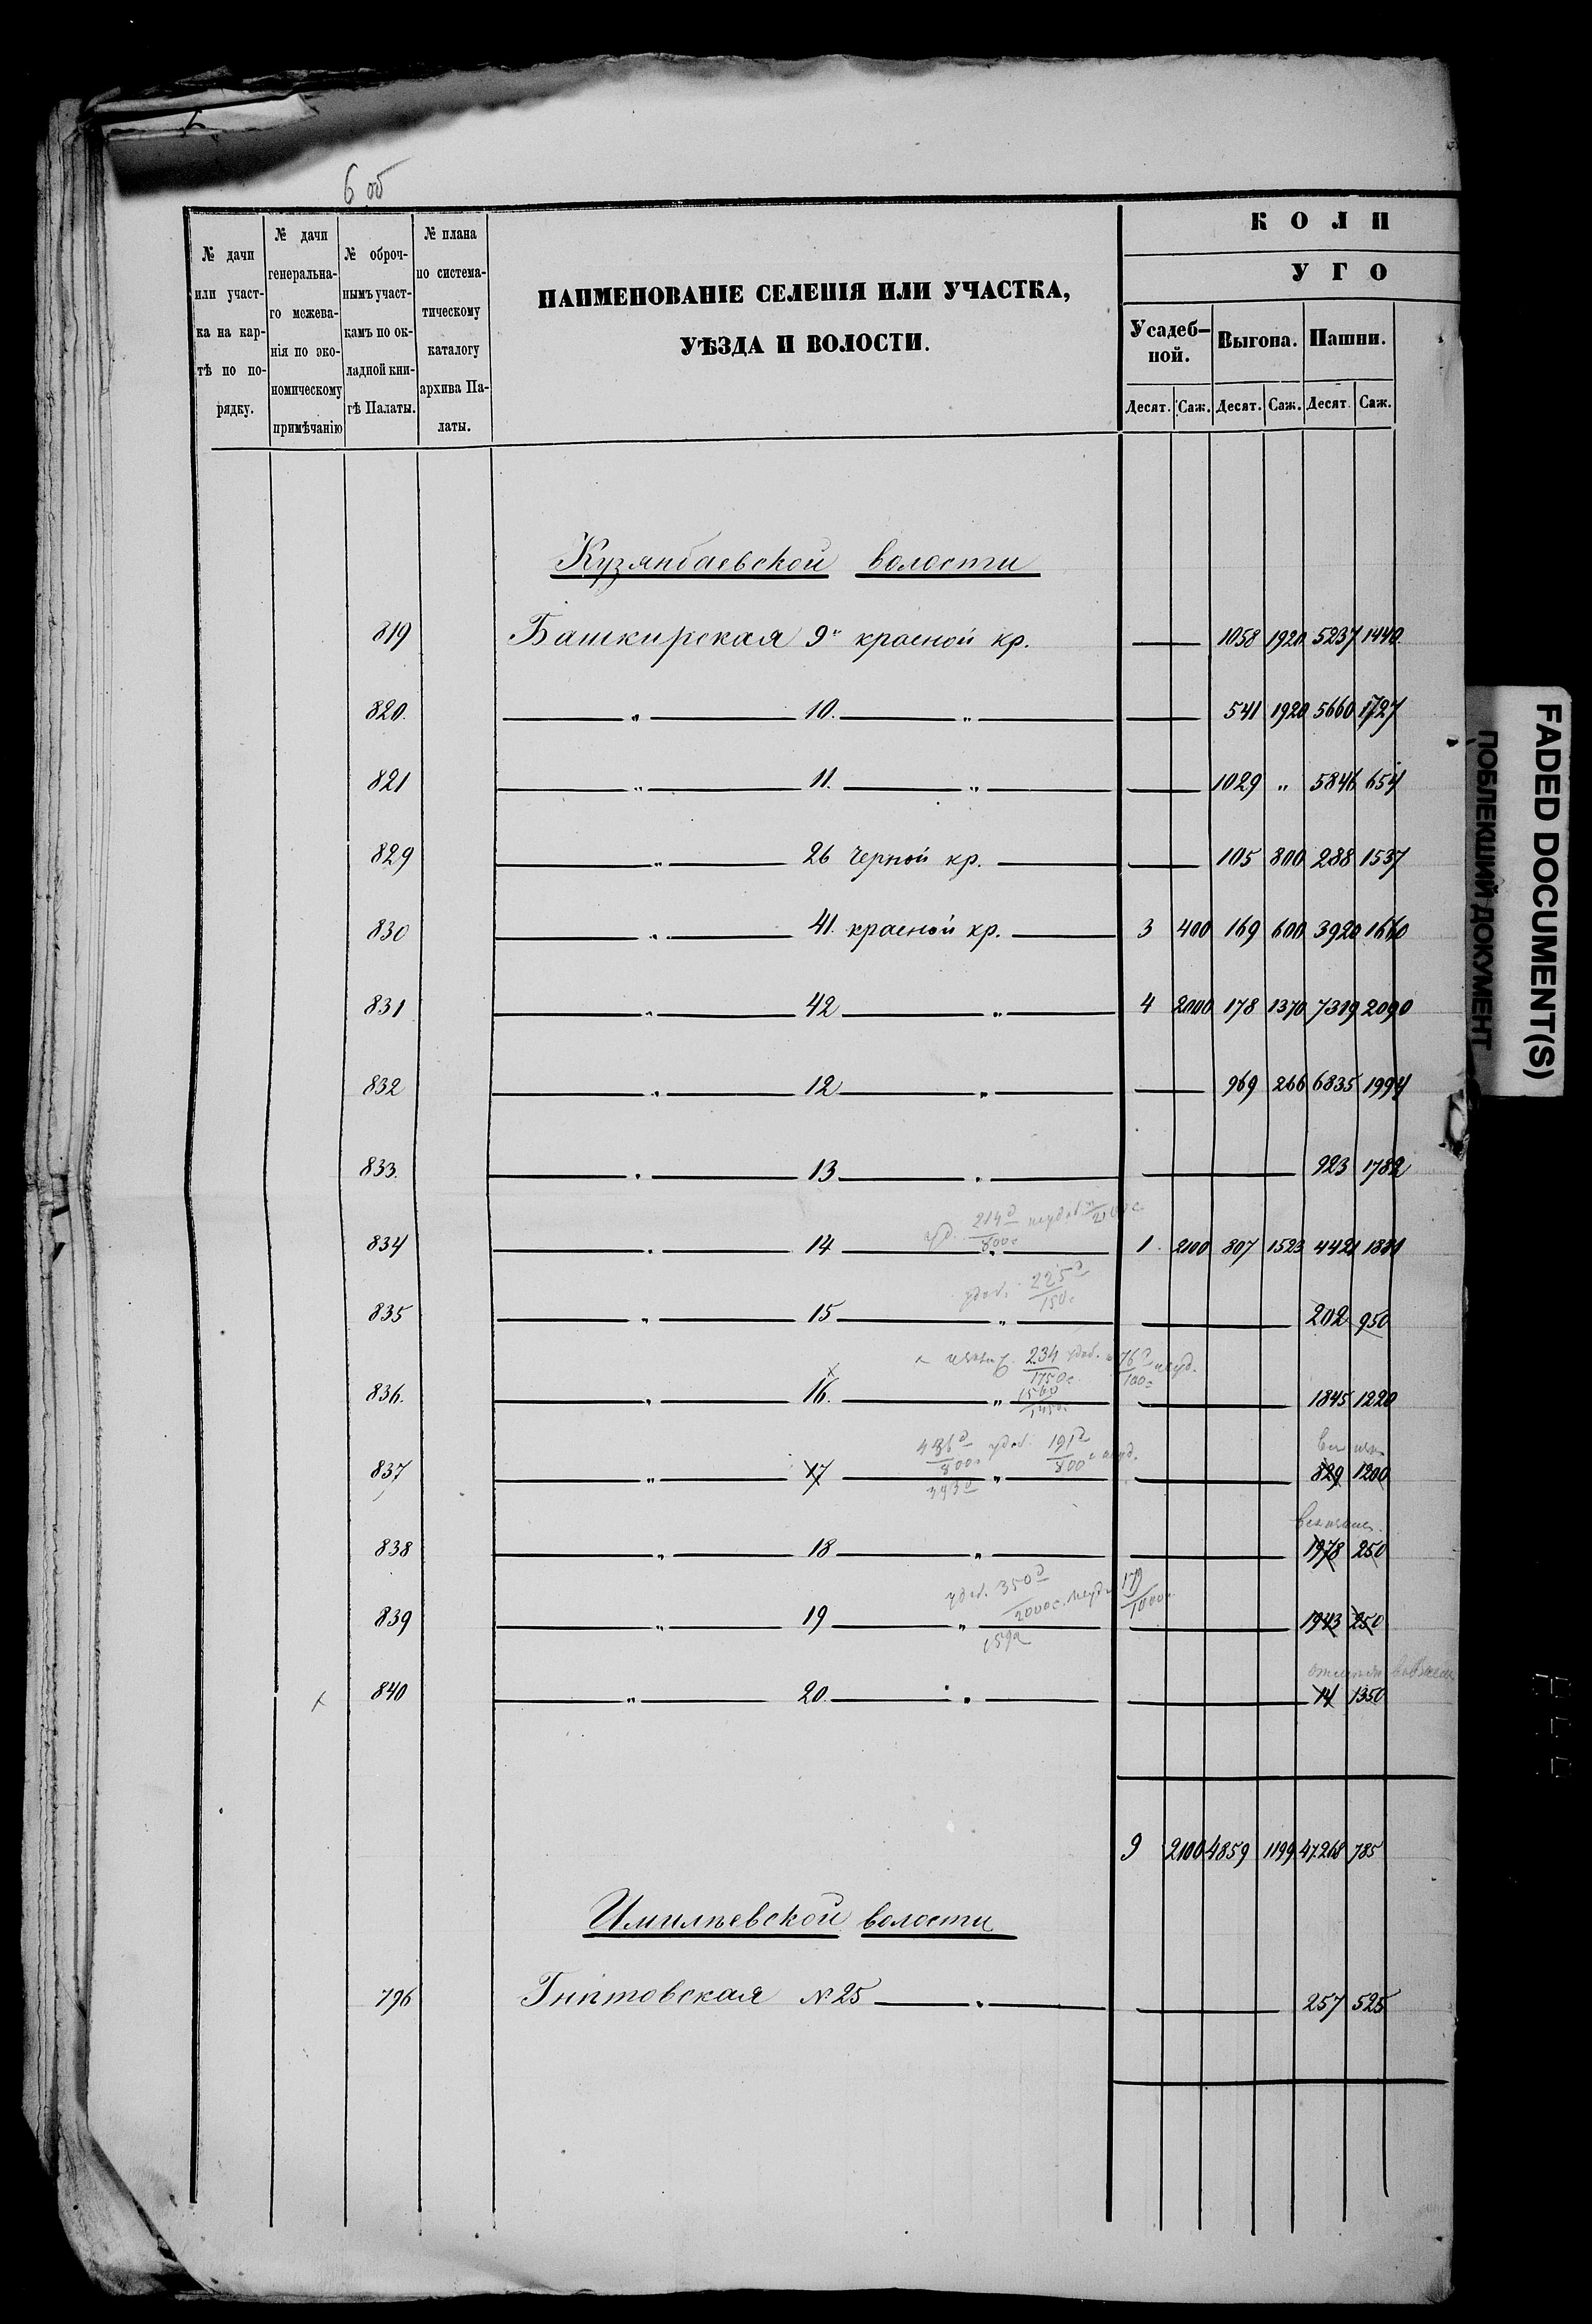 6 об
К О Л И
У Г О
№ дачи или участ-ка на кар-тѣ по по-рядку.
№ дачи генерально-го межева-нія по эко-номическому примѣчанію
№ оброч-нымъ участ-камъ по ок-ладной кни-гѣ Палаты.
№ плана по система-тическому каталогу архива Па-латы.
НАИМЕНОВАНІЕ СЕЛЕНІЯ ИЛИ УЧАСТКА,
УѢЗДА И ВОЛОСТИ.
Усадеб-ной. Выгона. Пашни.
Десят. Саж. Десят. Саж. Десят. Саж.
Кузянбаевской волости
819 Башкирская 9" красной кр. — 1058 1920 5237 1440
820. — „ — 10. — „ — 541 1920 5660 1727
821 — „ — 11. — „ — 1029 „ 5846 654
829 — „ — 26 черной кр. — 105 800 288 1537
830 — „ — 41. красной кр. — 3 400 169 600 3920 1660
831 — „ — 42 — „ — 4 2000 178 1370 7319 2090
832 — „ — 12 — „ — 969 266 6835 1994
833. — „ — 13 — „ — 923 1782
уд. 214д 800с неудоб.
834 — „ — 14 — „ — 1 2100 807 1523 4421 1881
удоб. 225д 150с
835 — „ — 15 — „ — 202 950
х 234 1750с удоб. 76д 100с неуд.
836. — „ — 16. — „ — 1845 1220
436д 800с удоб. 191д 800с неуд.
837 — „ — 17 — „ 393д — 829 1200
838 — „ — 18 — „ — 1978 250
удоб. 350д 2000с. неуд. 179 1000с
839 — „ — 19 — „ — 1943 250
х 840 — „ — 20. — „ — 14 1350
9 2100 4859 1199 47268 785
Имилѣевской волости
796 Типтовская № 25 — „ — 257 525
FADED DOCUMENT(S)
ПОБЛЕКШИЙ ДОКУМЕНТ